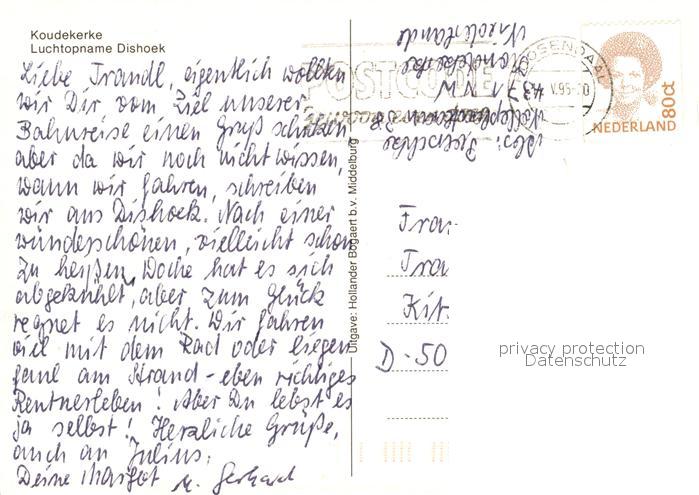 Koudekerke
Luchtopname Dishoek
Liebe Traudl, eigentlich wollten
wir Dir vom Ziel unserer
Bahnreise einen Gruß schicken,
aber da wir noch nicht wissen,
wann wir fahren, schreiben
wir aus Dishoek. Nach einer
wunderschönen, vielleicht schon
zu heißen, Woche hat es sich
abgekühlt, aber zum Glück
regnet es nicht. Wir fahren
viel mit dem Rad oder liegen
faul am Strand - eben richtiges
Rentnerleben! Aber Du lebst es
ja selbst! Herzliche Grüße,
auch an Julius,
Deine Margot u. Gerhard
Uitgave: Hollander Bogaert b.v. Middelburg
POSTCODE
ROOSENDAAL
V.95
NEDERLAND
80ct
Abs:
4371 NW
Koudekerke
Niederlande
Frau
Tra
Kit
D-50
privacy protection
Datenschutz